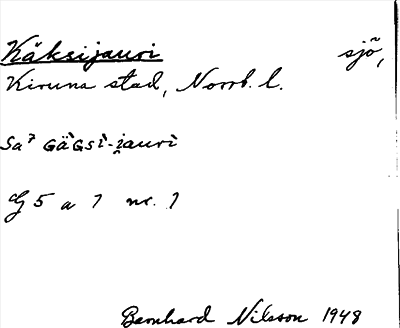 Käksijauri sjö,
Kiruna stad, Norrb. l.
Sa⁷ Gä̀Gsì-i̯aurì
G 5 a 7 nr. 1
Bernhard Nilsson 1948